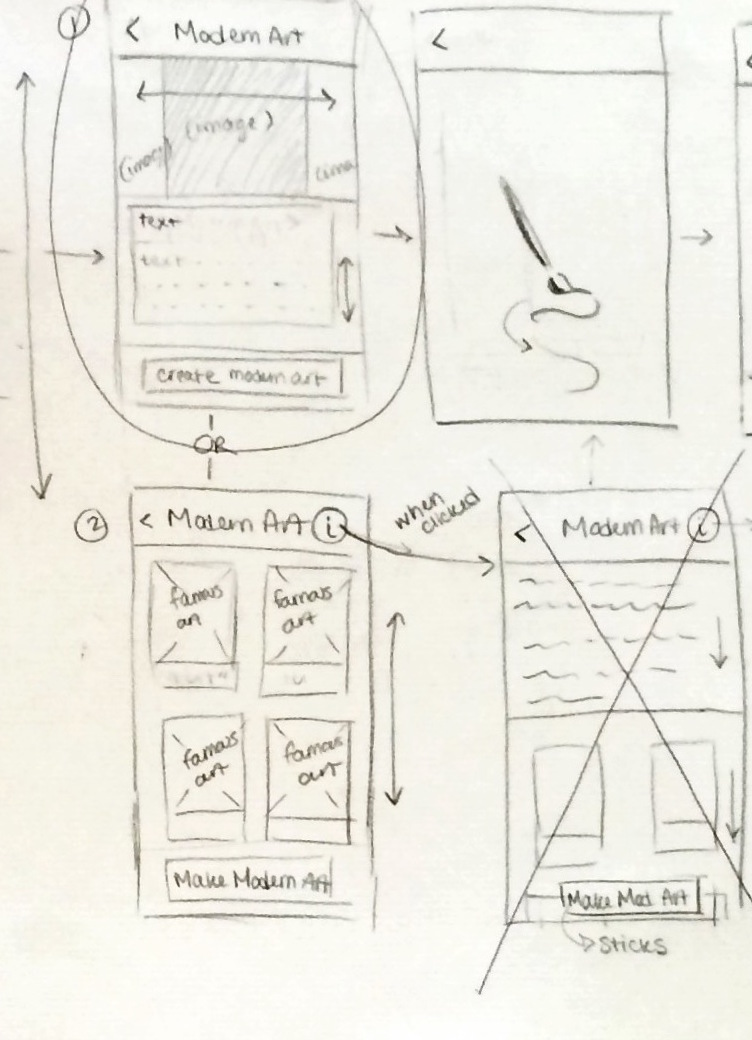 1
< Modern Art
(image)
(image)
(ima
text
text
create modern art
<
OR
2
< Modern Art i
when
clicked
famous
art
famous
art
famous
art
famous
art
Make Modern Art
< Modern Art i
Make Mod Art
Sticks